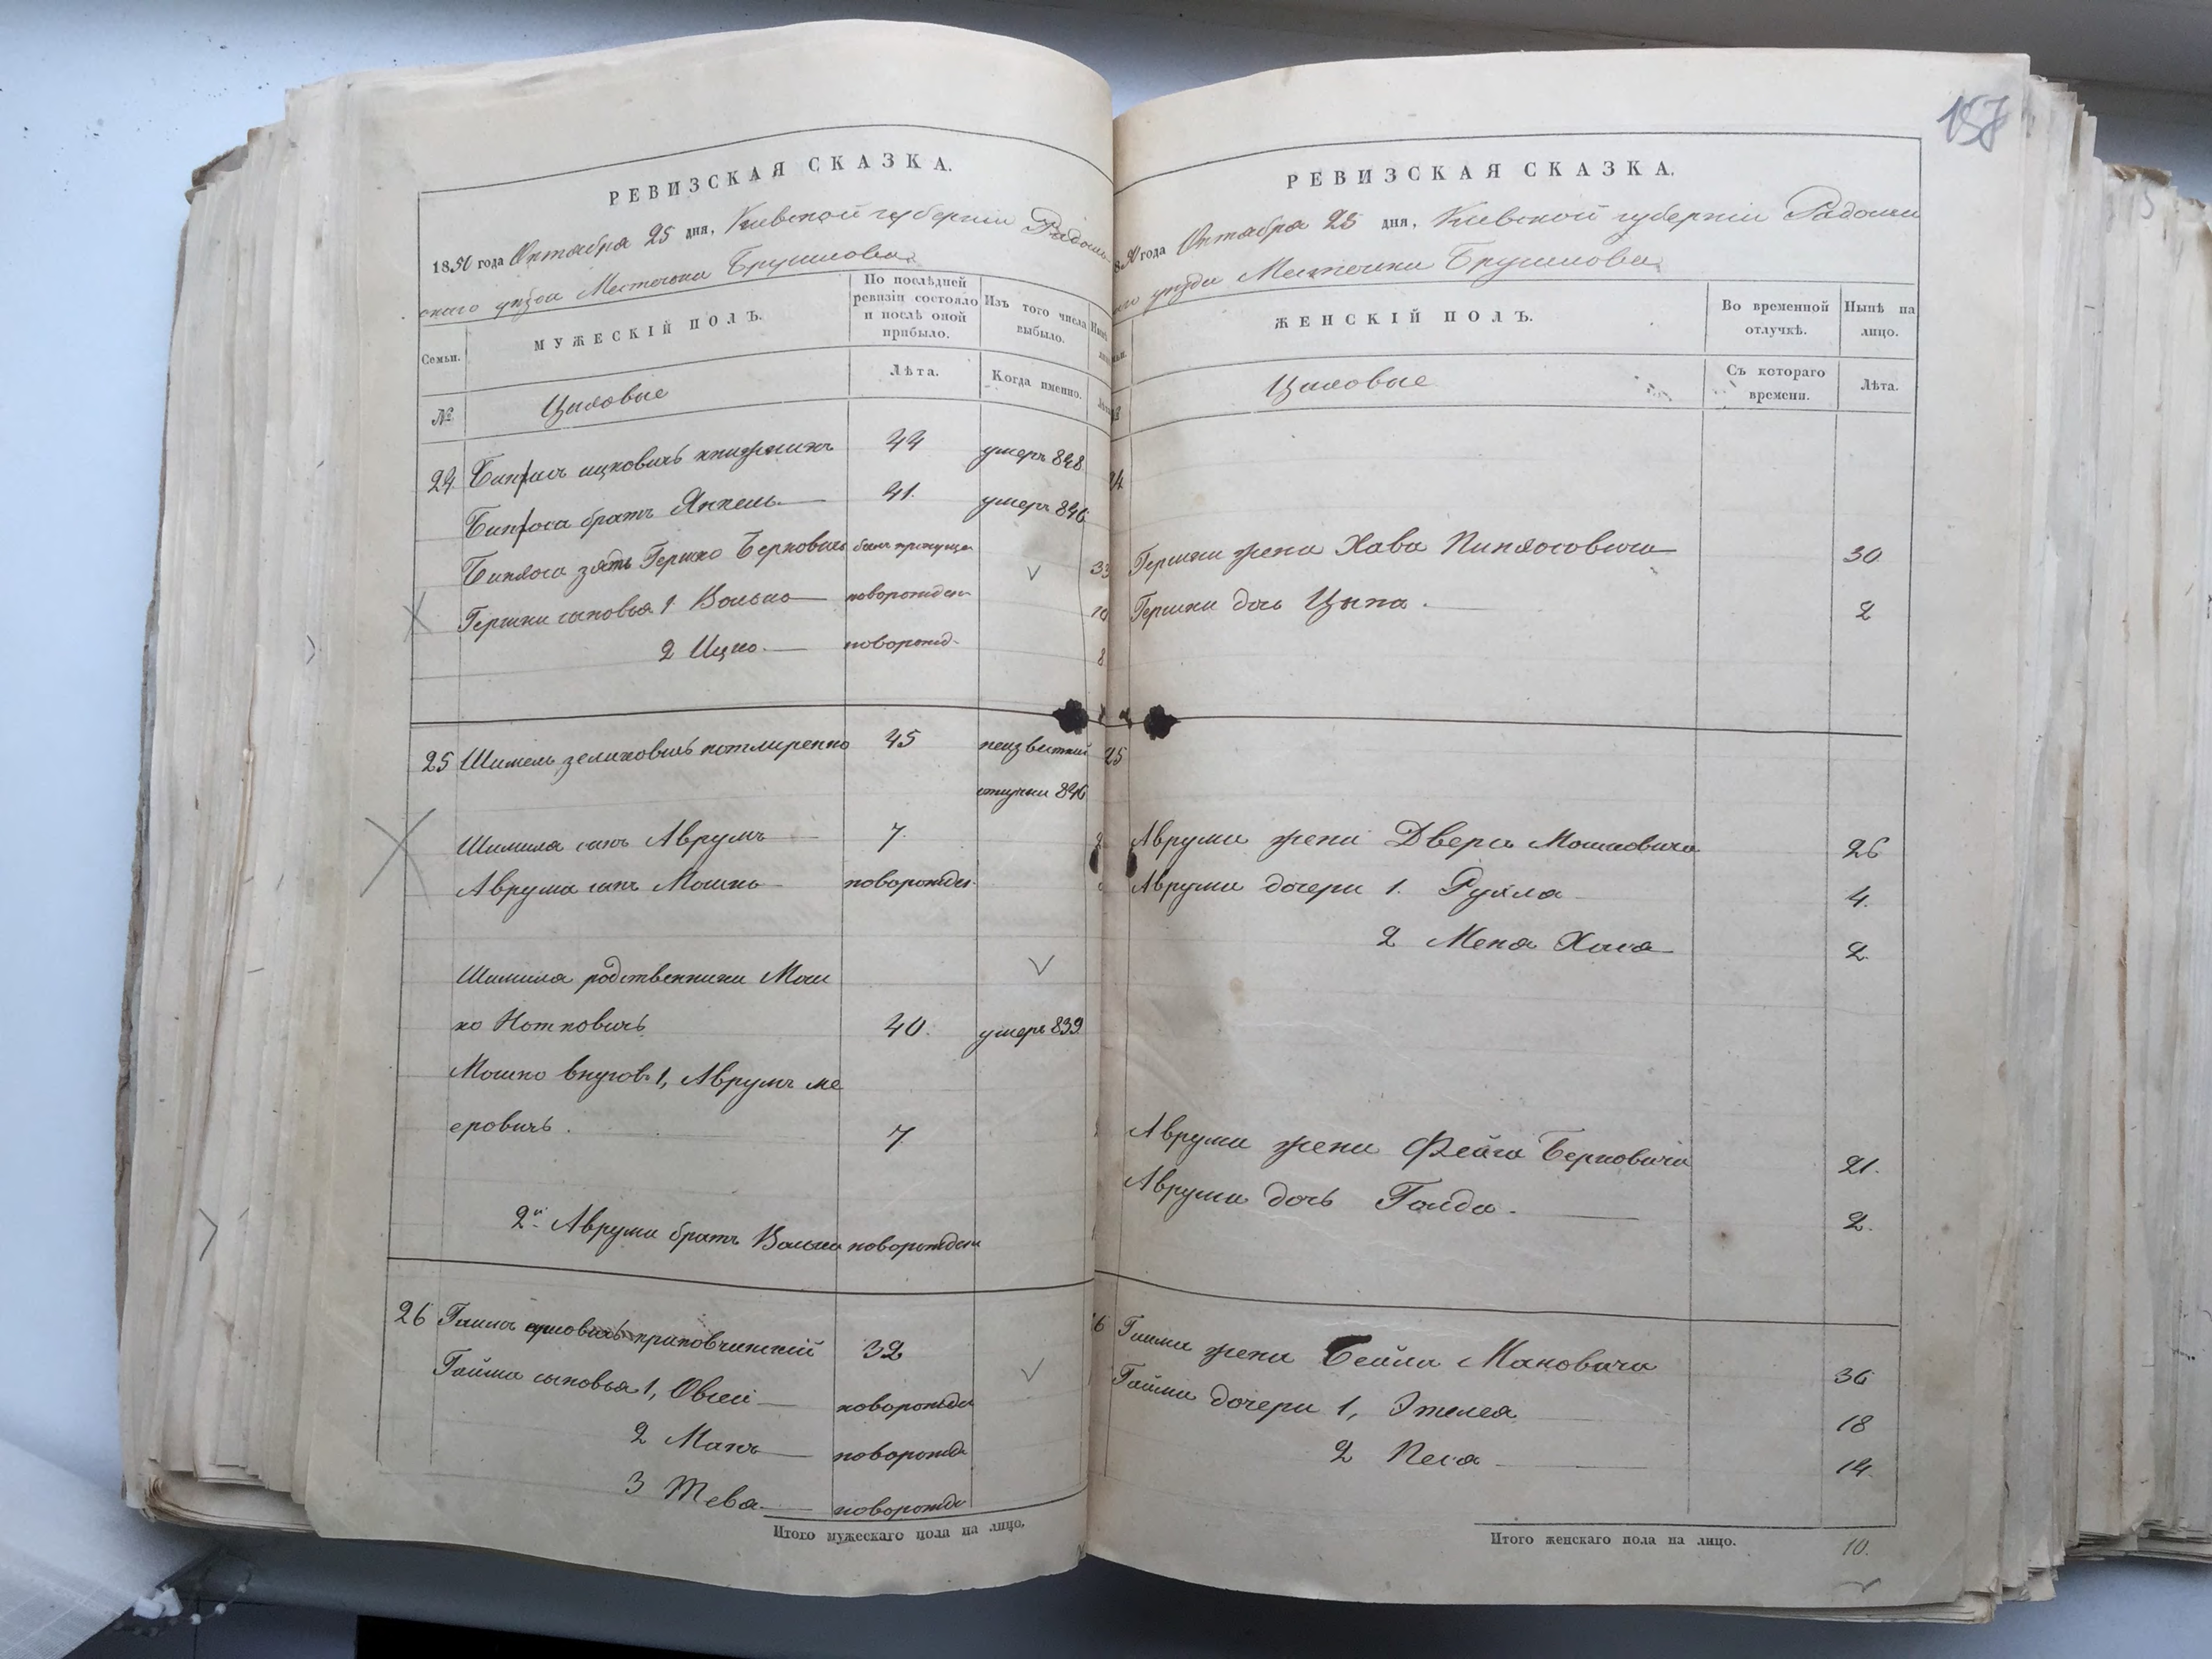 РЕВИЗСКАЯ СКАЗКА.
1850 года Октября 25 дня, Киевской губернии Радомы
скаго уезда Местечка Брусилова
Семьи.
МУЖЕСКІЙ ПОЛЪ.
По послѣдней ревизіи состояло и послѣ оной прибыло.
Изъ того числа выбыло.
№
Цеховые
Лѣта.
Когда именно.
24 Пинхасъ ицковичъ 44 умеръ 848
Пинхоса братъ Янкель 41. умеръ 846
Пинхоса зять Гершко Берковичъ былъ пропущен 33
Гершки сыновья 1 Волько новорожден 10
2 Ицко новорожд. 8
25 Шимель зелиховичъ 45 неизвестной
отлучки 846
Шимеля сынъ Аврумъ 7
Аврума сынъ Мошко новорожден
Шимеля родственники Мош
ко Нотковичъ 40. умеръ 839
Мошко внуков 1, Аврумъ ме
еровичъ. 7
2й Аврума братъ Волько новорожден
26 32
Гоима сыновья 1, Овсей новорожде
2 Манъ новорожде
3 Тевя новорожде
Итого мужескаго пола на лицо.
157
РЕВИЗСКАЯ СКАЗКА.
50 года Октября 25 дня, Киевской губерніи Радомы
уезда Местечка Брусилова
ЖЕНСКІЙ ПОЛЪ.
Во временной отлучкѣ.
Нынѣ на лицо.
Цеховые
Съ котораго времени.
Лѣта.
24
Гершки жена Хава Пинхосовича 30
Гершки дочь Цыпа. 2
25
Аврума жена Двера Мошковича 26
Аврума дочери 1. Рухля 4.
2 Меня Хася 2
Аврума жена Фейга Берковича 21.
Аврума дочь Голда. 2.
26 жена Бейла Мановича 36
дочери 1, Этлея 18
2 Песя 14.
Итого женскаго пола на лицо. 10.